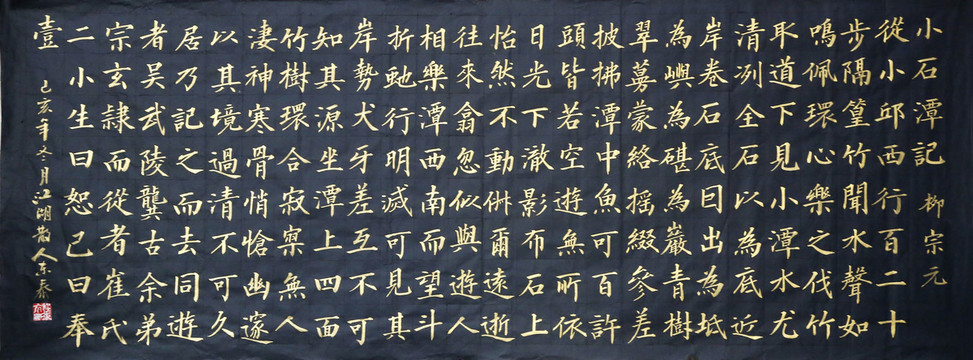 小石潭記 柳宗元
從小邱西行百二十
步隔篁竹聞水聲如
鳴佩環心樂之伐竹
取道下見小潭水尤
清冽全石以為底近
岸卷石底㠯出為坻
為嶼為碪為巖青樹
翠蔓蒙絡搖綴參差
披拂潭中魚可百許
頭皆若空遊無所依
日光下澈影布石上
怡然不動俶爾遠逝
往來翕忽似與遊人
相樂潭西南而望斗
折虵行明滅可見其
岸勢犬牙差互不可
知其源坐潭上四面
竹樹環合寂寥無人
淒神寒骨悄愴幽邃
以其境過清不可久
居乃記之而去同遊
者吳武陵龔古余弟
宗玄隸而從者崔氏
二小生曰恕己曰奉
壹
己亥年冬月江湖散人东泰